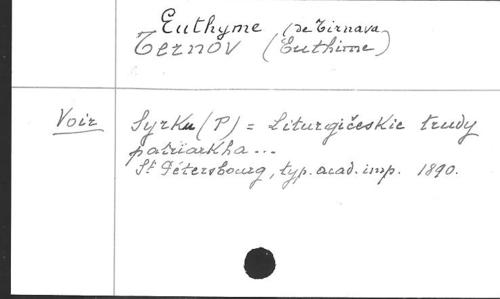 Euthyme (de Tirnava
Ternov (Euthime)
Voir Syrku (P) = Liturgičeskie trudy
patriarkha...
St Pétersbourg, typ. acad. imp. 1890.